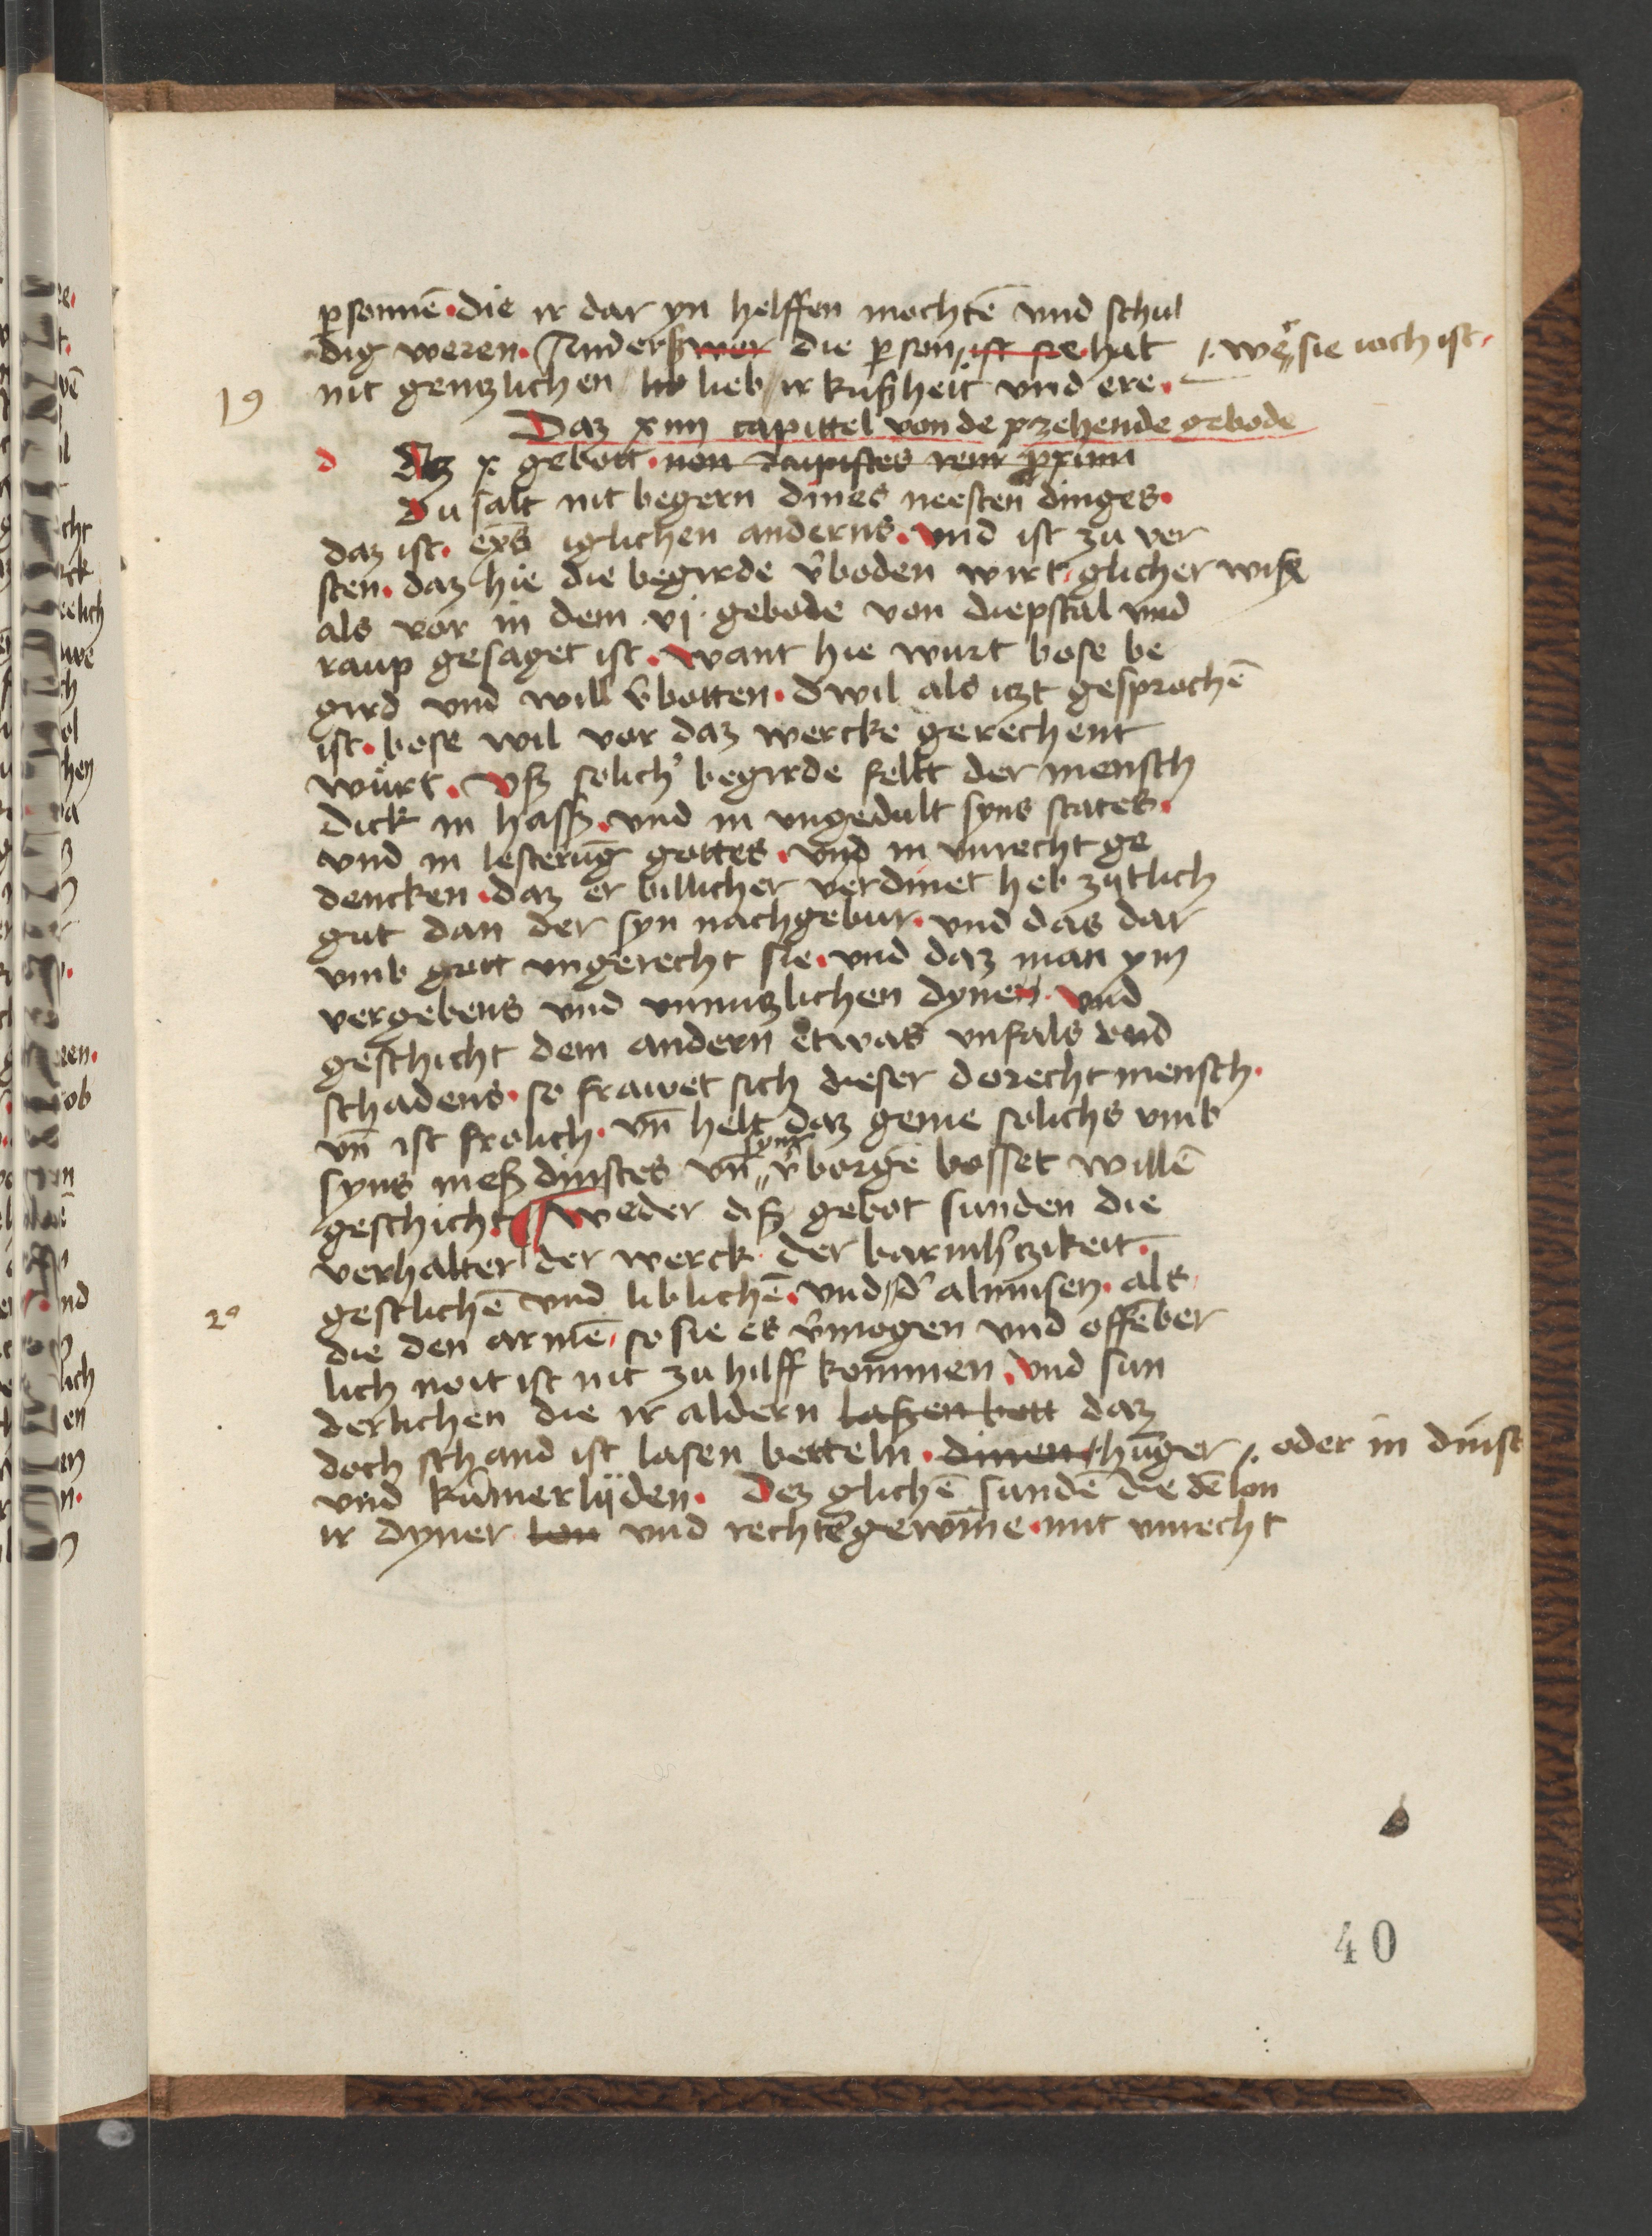 psonnē die ir dar yn helffen mochtē vnd schul
dig weren. Anderß wer die pson ist sie hat
wer sie ioch ist
nit gentzlichen lieb ir kußheit vnd ere.
19
Daz xiiij capittel von de xzehende gebode
d
daz x gebott non
du salt nit begern dines neesten dinges.
daz ist. eyns iglichen anderns. vnd ist zu ver
sten. daz hie die begirde v̄boden wirt glicher wiße
als vor in dem vj gebode von diepstal vnd
raup gesaget ist. want hie wurt bose be
gird vnd will v̄botten. dwil als itzt gesprochē
ist. bose wil vor daz wercke gerechent
würt. Vß solich' begirde fellt der mensch
dick in haß. vnd in vngedult syns states.
vnd in lesterūg gottes. vnd in vnrecht ge
dencken. daz er billicher verdinet heb zijtlich
gut dan der syn nachgebur. vnd das dar
vmb gott vngerecht sie. vnd daz man ym
vergebens vnd vnnutzlichen dynen. vnd
geschicht dem andern etwas vnfals vnd
schadens. so frawet sich dieser dorecht mensch.
vn̄ ist frolich. vn̄ helt daz genie solichs vmb
syner
syns meß dinstes vn̄ v̄borgē bosset willē
geschicht. Weder diß gebot sunden die
verhalter der werck der barmh'tzikeit.
gestlichē vnd liblichē. vnd d' almusen. als
20
die den armē, so sie es v̄mogen vnd offēber
lich noit ist nit zu hilff kommen. vnd sun
derlichen die ir aldern laßen bett daz
doch schand ist lasen betteln. dinen hūger
oder in dinst
vnd kūmer lijden. Dez glichē sundē die dē lon
ir dyner lon vnd rechtē gewīne mit vnrecht
40